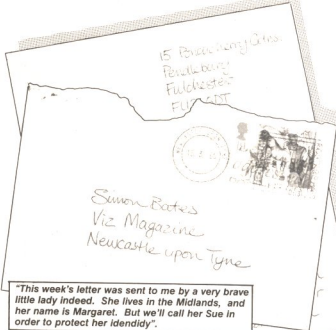 Pendlebury
Fulchester
Simon Bates
Viz Magazine
Newcastle upon Tyne
"This week's letter was sent to me by a very brave
little lady indeed. She lives in the Midlands, and
her name is Margaret. But we'll call her Sue in
order to protect her idendidy".